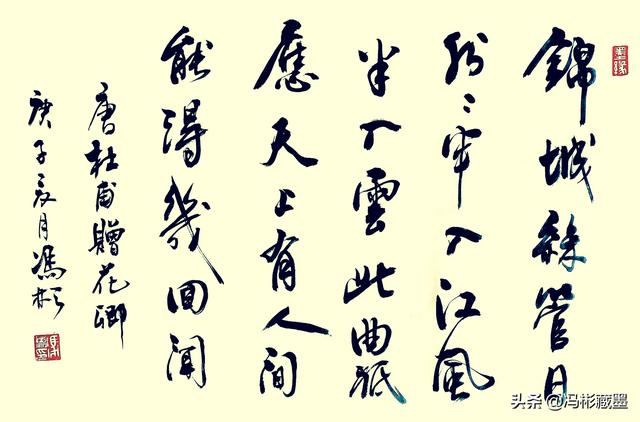 錦城絲管日
紛〻半入江風
半入雲此曲祗
應天上有人間
能得幾回聞
唐杜甫贈花卿
庚子夏月馮彬
墨缘
头条 @冯彬藏墨